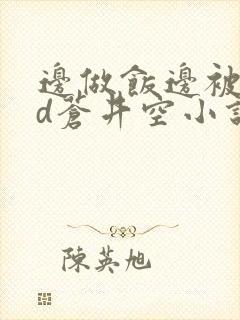 邊做飯邊被
d蒼井空小說
陳英旭